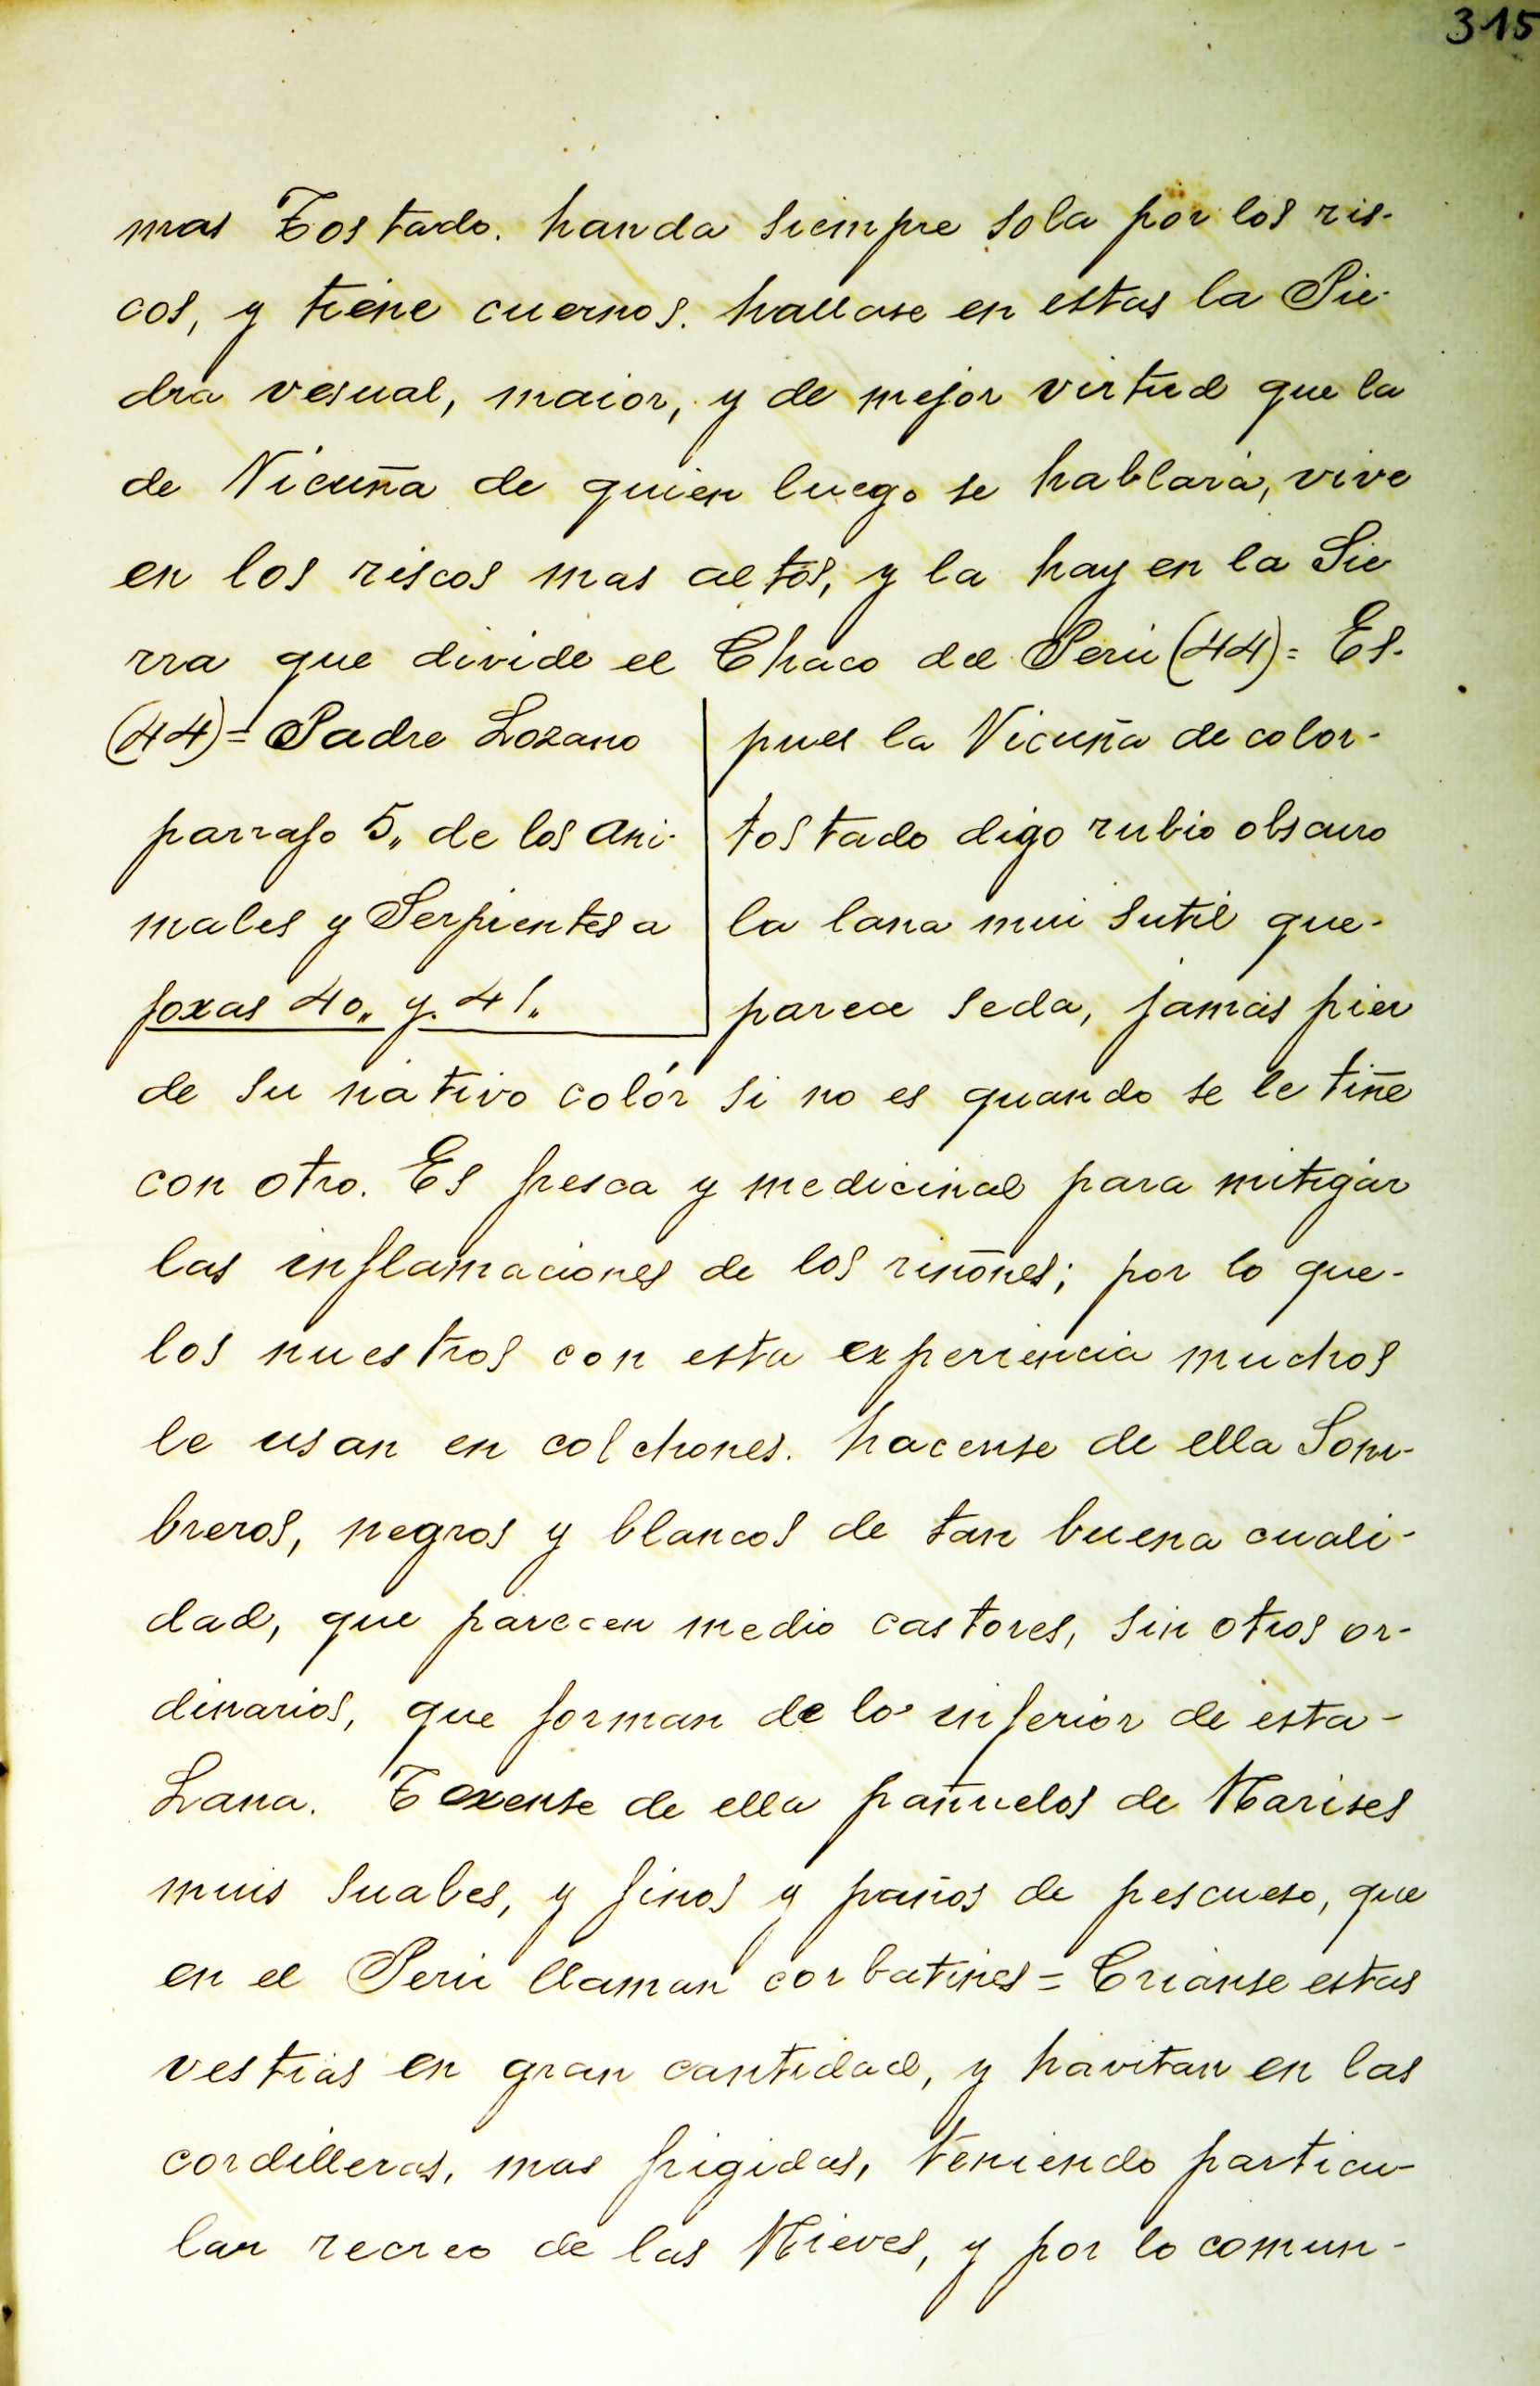 315
mas Tostado. handa siempre sola por los ris-
cos, y tiene cuernos. hallase en estas la Pie-
dra vesual, maior, y de mejor virtud que la
de Vicuña de quien luego se hablará, vive
en los riscos mas altos, y la hay en la Sie
rra que divide el Chaco del Perú (44)= Es-
(44)= Padre Lozano
parrafo 5,, de los Ani-
males y Serpientes a
foxas 40,, y 41,,
pues la Vicuña de color-
tostado digo rubio obscuro
la lana mui sutil que-
parece seda, jamás pier
de su nativo colór si no es quando se le tiñe
con otro. Es fresca y medicinal para mitigar
las inflamaciones de los riñones; por lo que-
los nuestros con esta experiencia muchos
le usan en colchones. hacense de ella Som-
breros, negros y blancos de tan buena cuali-
dad, que parecen medio castores, sin otros or-
dinarios, que forman de lo inferior de esta-
Lana. Texense de ella pañuelos de Narises
muis suabes, y finos y paños de pescueso, que
en el Perú llaman corbatines = Crianse estas
vestias en gran cantidad, y havitan en las
cordilleras, mas frigidas, teniendo particu-
lar recreo de las Nieves, y por lo comun-